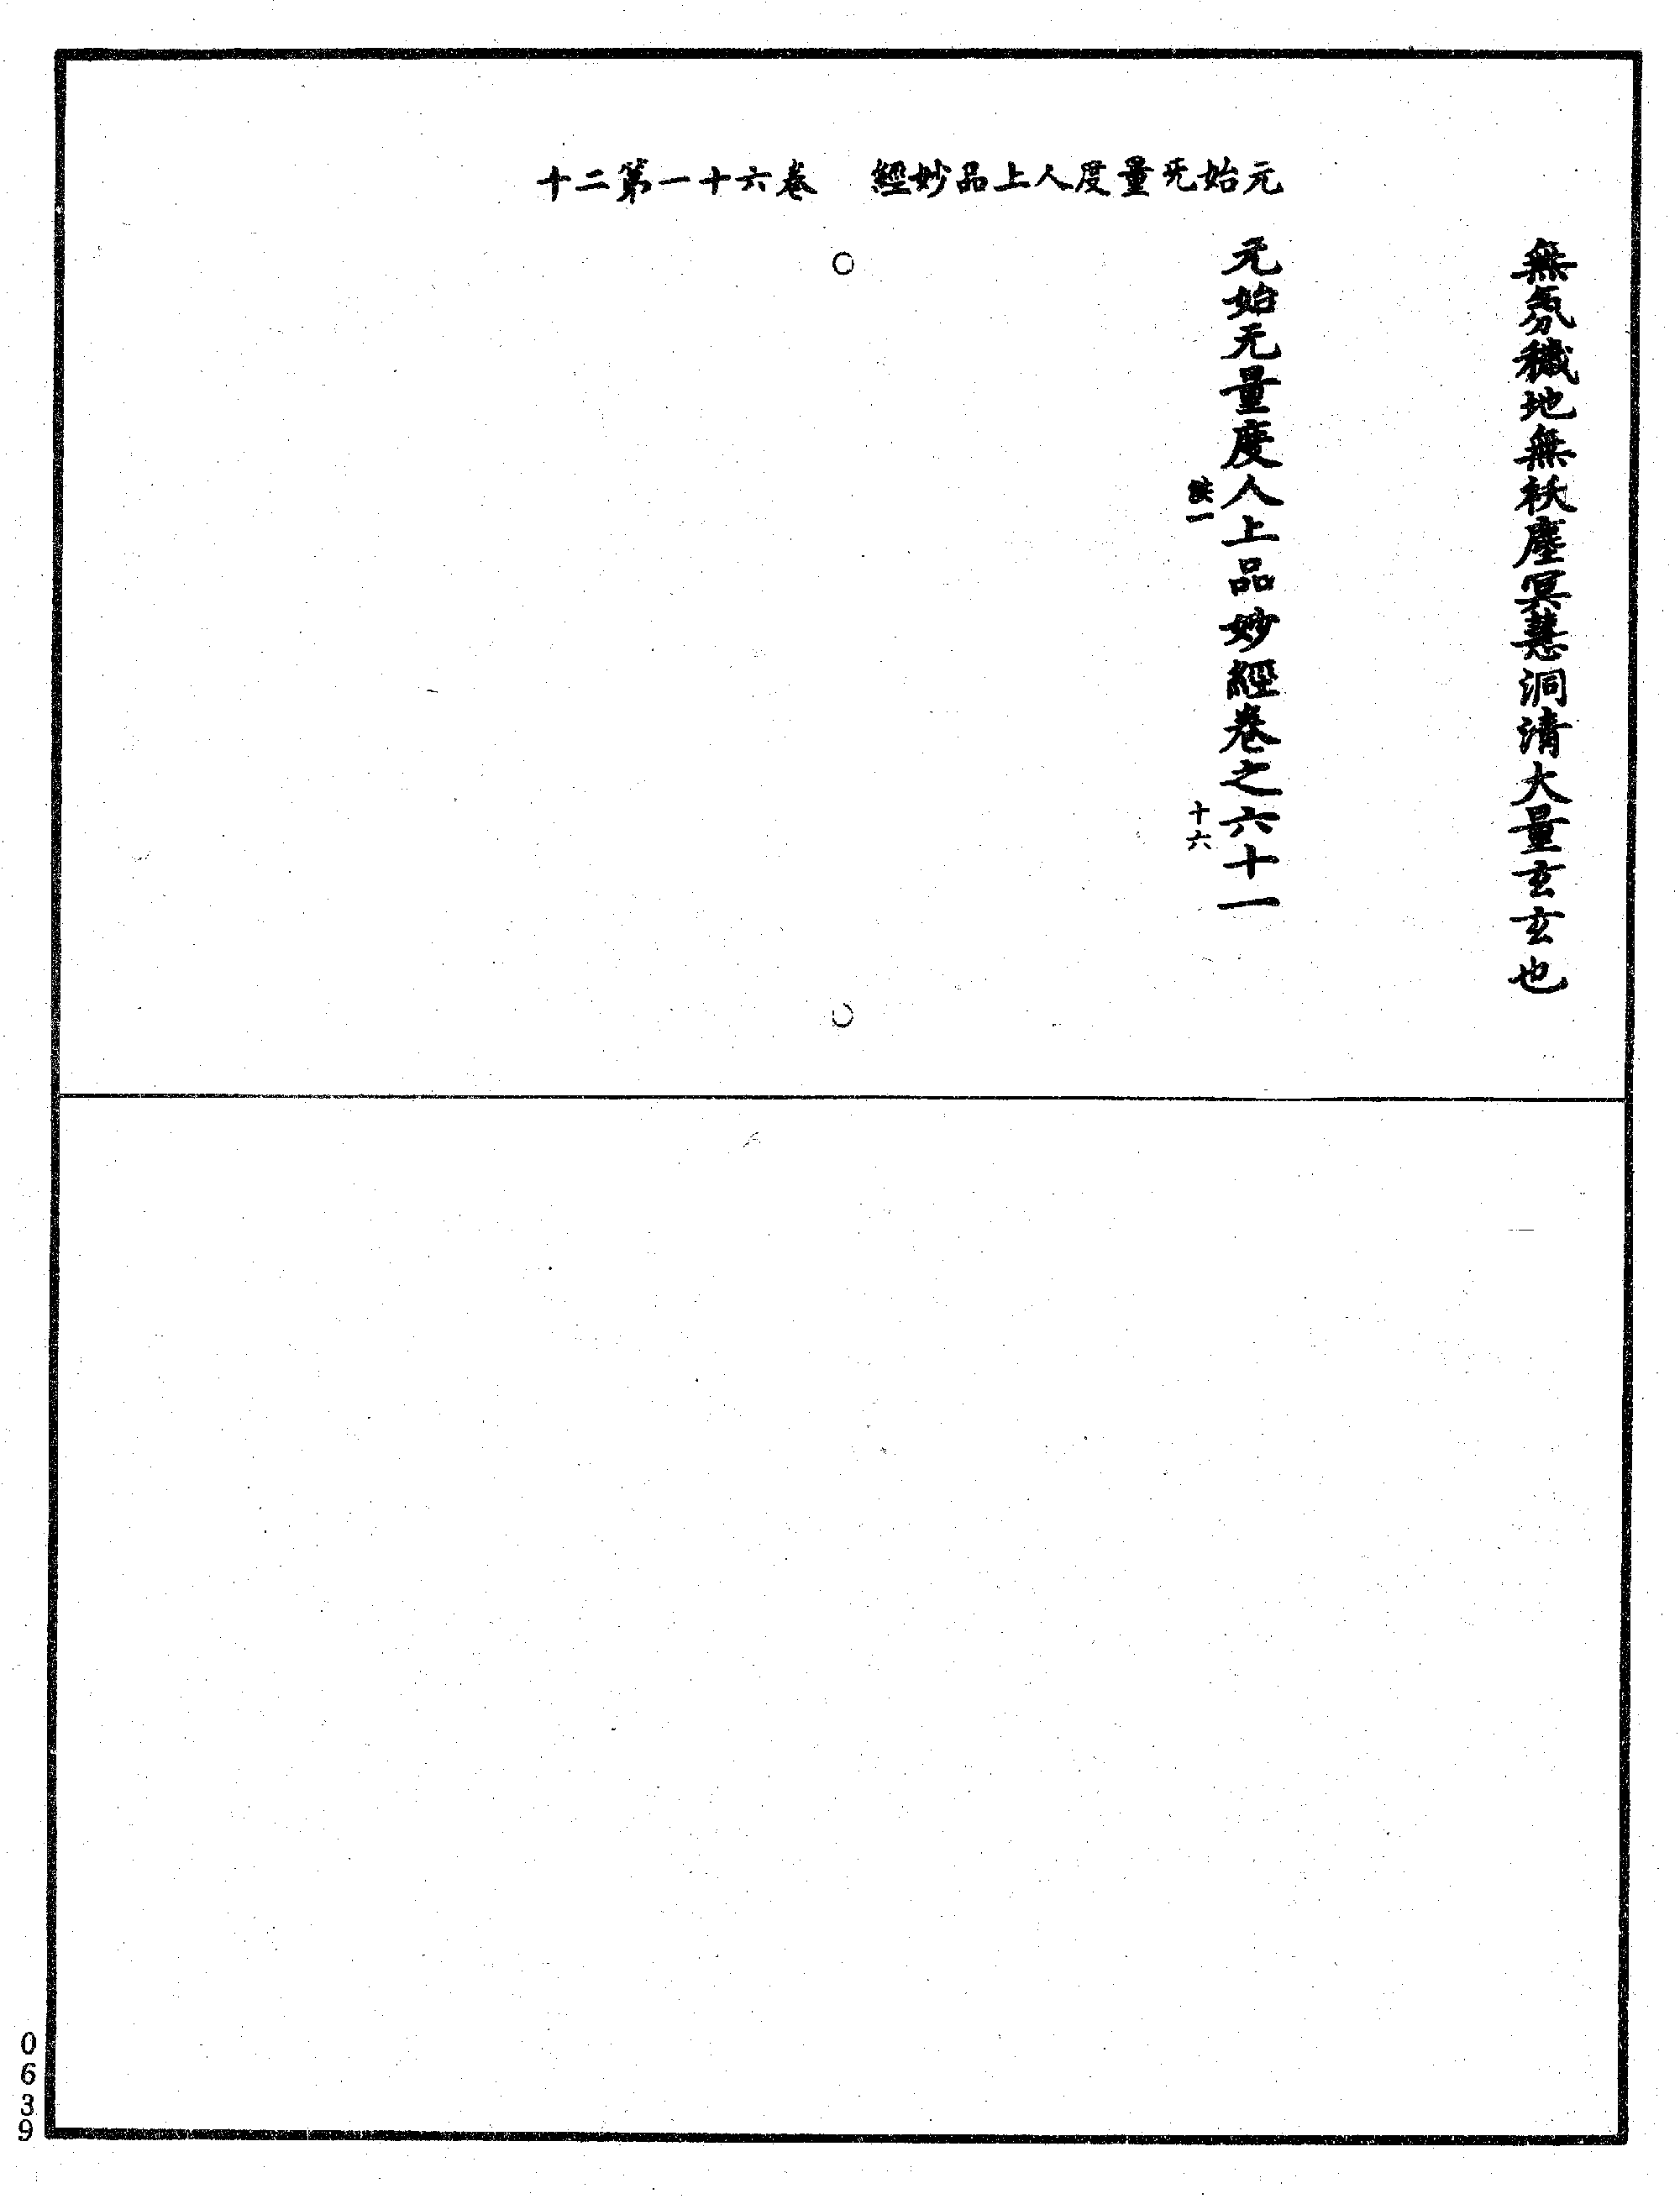 元始无量度人上品妙經　卷六十一第二十
無氛穢地無祅塵冥慧洞清大量玄玄也
元始无量度人上品妙經卷之六十一
一
十六
0639